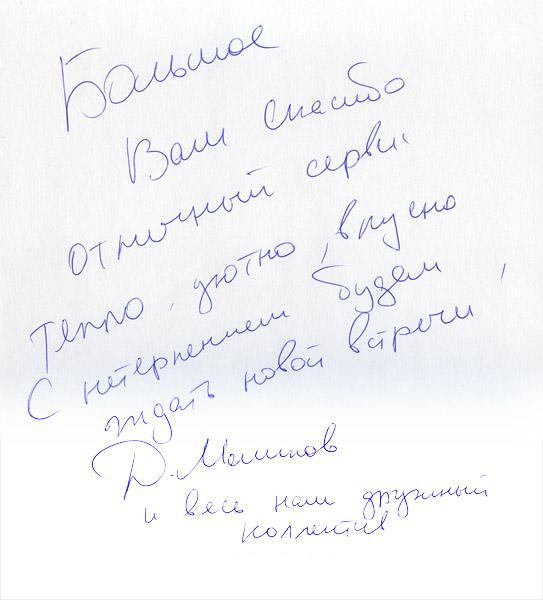 Большое
Вам спасибо
Отличный сервис
Тепло, уютно, вкусно
С нетерпением будем
ждать новой встречи,
Д. Маликов
и весь наш дружный
коллектив